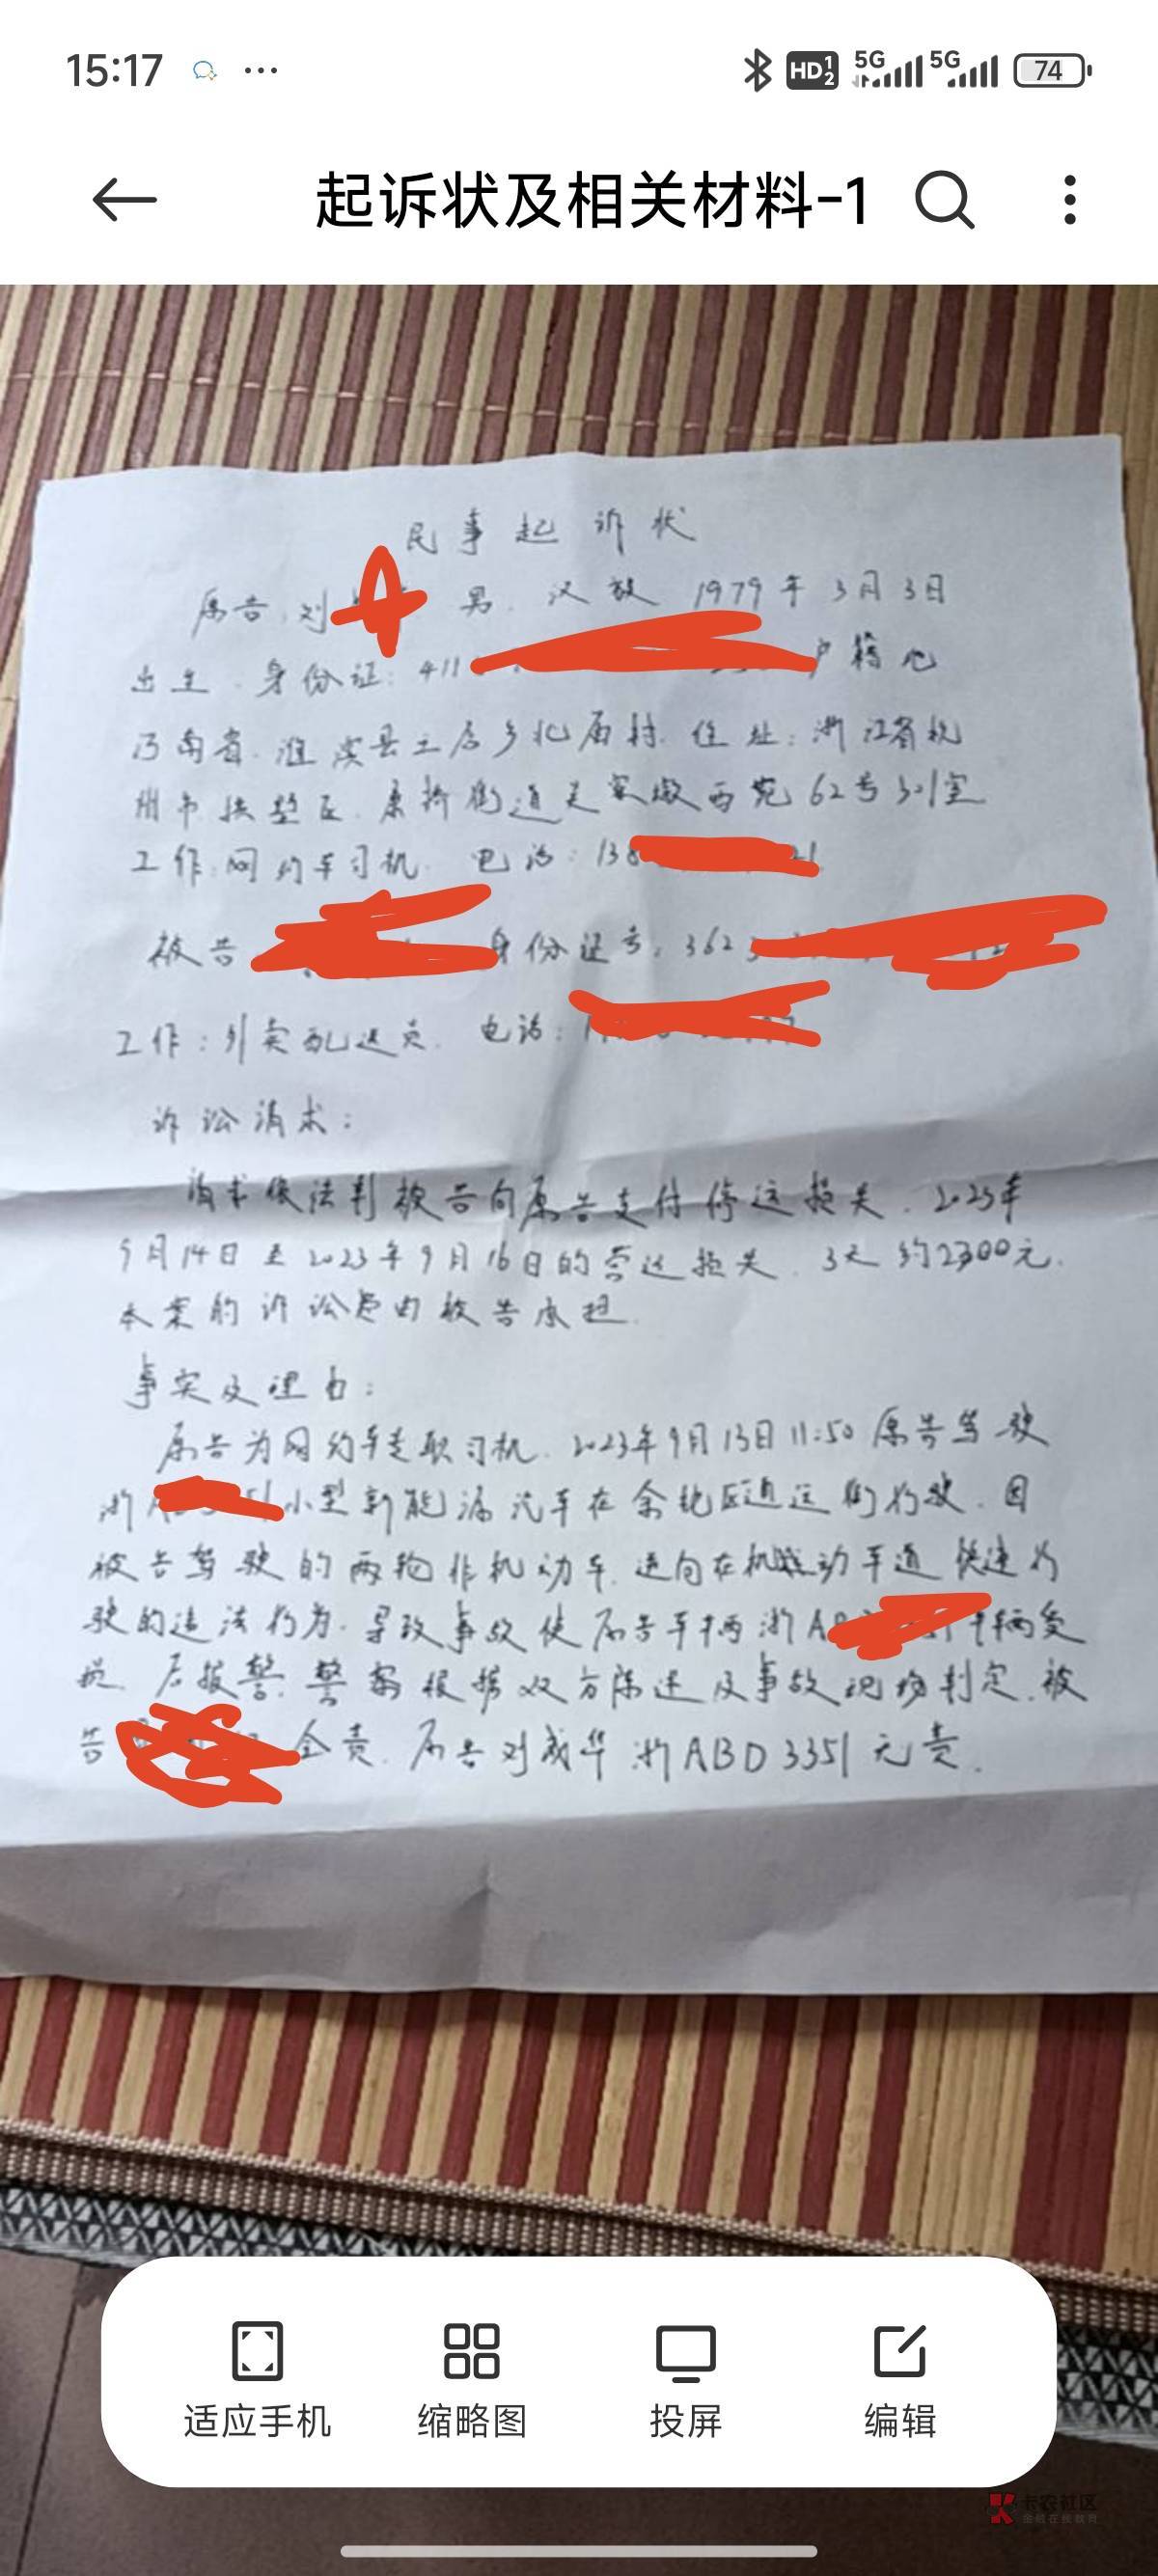 15:17
HD 1 2 5G 5G 74
起诉状及相关材料-1
民事起诉状
原告 刘 男. 汉族 1979年3月3日
出生. 身份证: 411 户籍地
河南省. 淮滨县王店乡北庙村. 住址: 浙江省杭
州市拱墅区. 康桥街道 家 西苑62号301室
工作: 网约车司机. 电话: 138 21
被告 身份证号: 362
工作: 外卖配送员. 电话: 1
诉讼请求:
请求依法判被告向原告支付停运损失. 2023年
9月14日至2023年9月16日的营运损失. 3天约2300元.
本案的诉讼费由被告承担.
事实及理由:
原告为网约车专职司机. 2023年9月13日11:50原告驾驶
浙A 小型新能源汽车在余杭区通运街行驶. 因
被告驾驶的两轮非机动车. 逆向在机动车道快速行
驶的违法行为. 导致事故使原告车辆浙A 车辆受
损. 后报警. 警察根据双方陈述及事故现场判定. 被
告 全责. 原告刘成华浙ABD3351无责.
适应手机
缩略图
投屏
编辑
卡农社区
金融在线教育